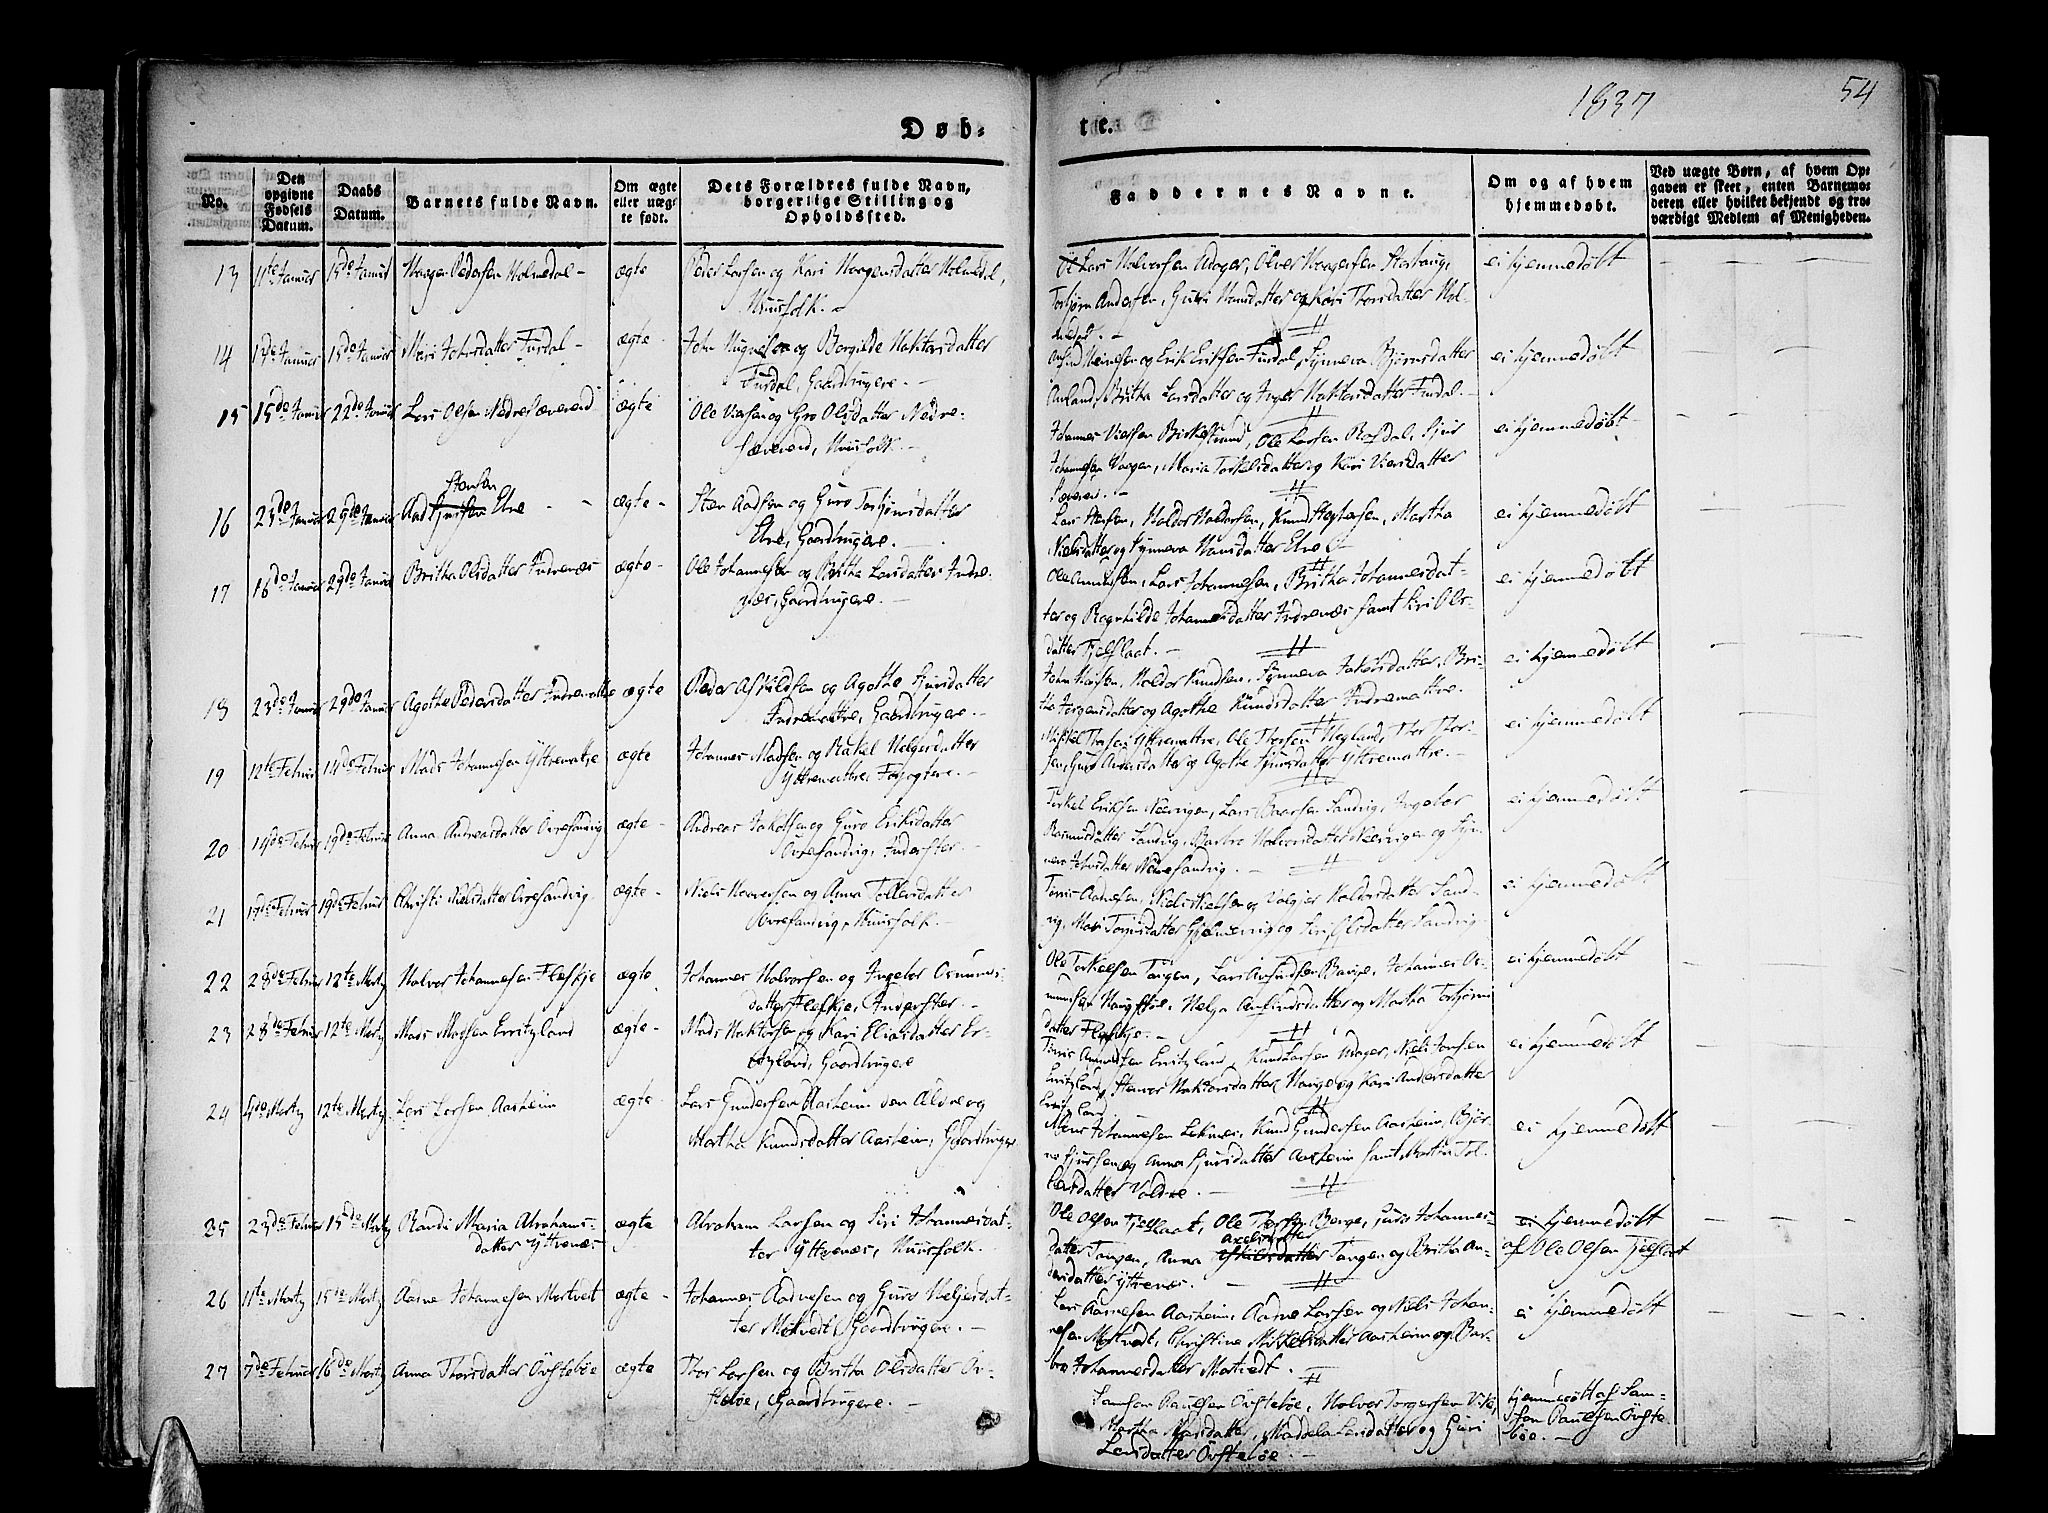 1837
54
Døb-
te.
No.
Den opgivne Fødsels Datum.
Daabs Datum.
Barnets fulde Navn.
Om ægte eller uægte født.
Dets Forældres fulde Navn, borgerlige Stilling og Opholdsted.
Faddernes Navne.
Om og af hvem hjemmedøbt.
Ved uægte Børn, af hvem Opgaven er skeet, enten Barnemoderen eller hvilket bekjendt og troværdigt Medlem af Menigheden.
13 11te Januar 15de Januar Haagen Pedersen Holmedal - ægte Peder Larsen og Kari Haagensdatter Holmedal,
Huusfolk. -
Lars Halversen Udager, Ølver Haagensen
Torbjørn Andersen, Guri Hansdatter og Kari Thorsdatter Hol-
medal. -
ei hjemmedøbt
14 Januar 15de Januar Mari Johnsdatter Furdal - ægte - John og Borgilde Haktorsdatter
Furdal, Gaardbrugere. -
og Erik Eriksen Furdal, Synneva Bjørnsdatter
Britha Larsdatter og Inger Haktorsdatter Furdal. -
ei hjemmedøbt
15 15de Januar 22de Januar Lars Olsen Nedre Sæverend ægte Ole Viersen og Gro Olsdatter Nedre-
sæverend, Huusfolk. -
Johannes Viersen Birkestrand, Ole Larsen Rosdal, Sjur
Johannesen Vaagen, Maria Torkelsdatter og Kari Viersdatter
ei hjemmedøbt
16 23de Januar 29de Januar Aad Steensen Elve - ægte - Steen Aadsen og Guro Torbjørnsdatter
Elve, Gaardbrugere. -
Lars Steensen, Haldor Haldorsen, Knud Stephensen, Martha
Nielsdatter og Synneva Hansdatter Elve -
ei hjemmedøbt
17 16de Januar 29de Januar Britha Olsdatter Indrenæs ægte - Ole Johannesen og Britha Larsdatter Indre-
næs, Gaardbrugere. -
Ole Amundsen, Lars Johannesen, Britha Johannesdat-
ter og Ragnhilde Johannesdatter Indrenæs samt Siri Ols-
datter Tjelflaat. -
ei hjemmedøbt
18 23de Januar 29de Januar Agothe Pedersdatter Indremattre ægte Peder Askildsen og Agothe Sjursdatter
Indremattre, Gaardbrugere. -
John Haldor Knudsen, Synneva Jakobsdatter, Bri-
the Jørgensdatter og Agothe Knudsdatter Indremattre.
ei hjemmedøbt
19 12te Februar 14de Februar Mads Johannesen Yttremattre ægte Johannes Madsen og Rakel Helgesdatter
Yttremattre,
Mikkel Thorsen Yttremattre, Ole Thorsen Hegland, Thor Thor-
sen, Guro Andersdatter og Agothe Sjursdatter Yttremattre. -
ei hjemmedøbt
20 14de Februar 19de Februar Anna Andreasdatter Øvresandvig ægte - Andreas Jakobsen og Guro Eriksdatter
Øvresandvig, Inderster. -
Torkel Eriksen Neervigen, Lars Sandvig, Ingebor
Rasmusdatter Sandvig, Barbro Halvorsdatter Neervigen og Syn-
neva Johnsdatter Nedresandvig. -
ei hjemmedøbt
21 17de Februar 19de Februar Christi Nielsdatter Øvresandvig ægte - Niels og Anna Tollevsdatter
Øvresandvig, Huusfolk. -
Tørris Aadnesen, Niels Nielsen og Valgjer Haldorsdatter Sand-
vig, Mari Torgersdatter og Siri Olsdatter Sandvig
ei hjemmedøbt
22 28de Februar 12te Martz Halvor Johannesen Fleskje ægte Johannes Halvorsen og Ingebor Osmunds-
datter Fleskje, Inderster. -
Ole Torkelsen Tangen, Lars Johannes Os-
mundsen Helga og Martha Torbjørns-
datter Fleskje. -
ei hjemmedøbt
23 28de Februar 12te Martz Mads Madsen Ersitzland ægte - Mads Haktorsen og Kari Eliasdatter Er-
sitzland, Gaardbrugere
Knud Larsen Udager, Niels Jansen
Haktorsdatter Hauge og Kari Andersdatter
ei hjemmedøbt
24 4de Martz 12te Martz Lars Larsen Aasheim ægte - Lars Gundersen Aasheim den Ældre og
Martha Knudsdatter Aasheim, Gaardbrugere
Mons Johannesen Leknæs, Knud Gundersen Aasheim, Bjør-
no Sjursen og Anna Sjursdatter Aasheim samt Martha Tol-
levsdatter Valdre. -
ei hjemmedøbt
25 23de Februar 15de Martz Randi Maria Abrahams-
datter Yttrenæs ægte Abraham Larsen og Siri Johannesdat-
ter Yttrenæs, Huusfolk. -
Ole Olsen Tjelflaat, Ole Thorsen Berge, Guro Johannes-
datter Tangen, Anna Axelsdatter Tangen og Britha An-
dersdatter Yttrenæs. -
hjemmedøbt
af Ole Olsen Tjelflaat
26 11te Martz 15de Martz Aasne Johannesen Mortvedt ægte - Johannes Aadnesen og Guro Helgesdat-
ter Mortvedt, Gaardbrugere. -
Lars Aasnesen Aasheim, Aadne Larsen og Niels Johan-
nesen Mortvedt, Christine Mikkelsdatter Aasheim og Bar-
bro Johannesdatter Mortvedt. -
ei hjemmedøbt
27 7de Februar 16de Martz Anna Thorsdatter Øvstebøe ægte Thor Larsen og Britha Olsdatter Øv-
stebøe, Gaardbrugere. -
Samson Paulsen Øvstebøe, Halvor Torgersen
Martha Madsdatter, Maddela Larsdatter og Guri
Larsdatter Øvstebøe. -
hjemmedøbt af Sam-
son Paulsen Øvste
bøe. -